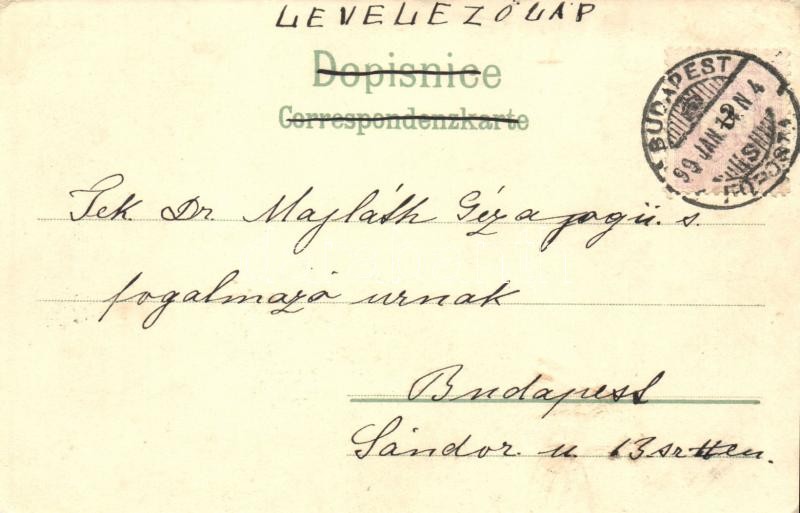 LEVELEZŐLAP
Dopisnice
Correspondenzkarte
BUDAPEST
99 JAN 12 N 4
Tek. Dr. Majláth Géza jogü. s.
fogalmazó urnak
Budapest
Sándor u. 13